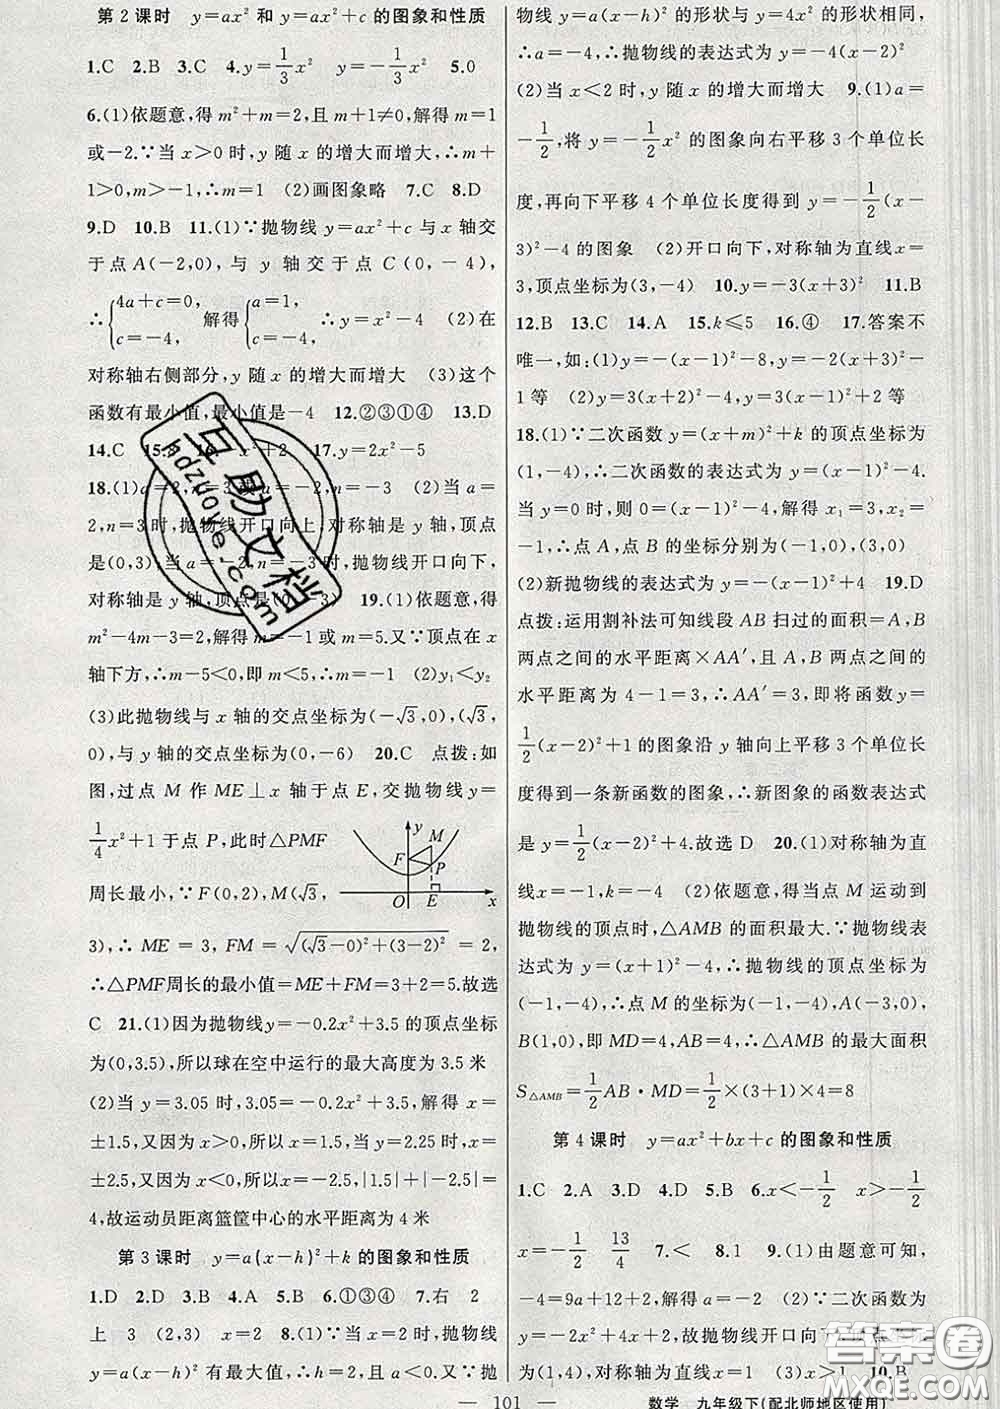 第2课时　y=ax²和y=ax²+c的图象和性质
1.C　2.B　3.C　4.y=1/3x²　y=-1/3x²　5.0
6.(1)依题意,得m²+m=2,且m+1≠0,解得m=1
或-2.∵当x>0时,y随x的增大而增大,∴m+
1>0,m>-1,∴m=1　(2)画图象略　7.C　8.D
9.D　10.B　11.(1)∵抛物线y=ax²+c与x轴交
于点A(-2,0),与y轴交于点C(0,-4),
∴{4a+c=0, c=-4, 解得{a=1, c=-4, ∴y=x²-4　(2)在
对称轴右侧部分,y随x的增大而增大　(3)这个
函数有最小值,最小值是-4　12.②③①④　13.D
14.C　15. 16. x²+2　17.y=2x²-5
18.(1)a=2,n=3或a=-2,n=-3　(2)当a=
2,n=3时,抛物线开口向上,对称轴是y轴,顶点
是(0,3),当a=-2,n=-3时,抛物线开口向下,
对称轴是y轴,顶点是(0,-3)　19.(1)依题意,得
m²-4m-3=2,解得m=-1或m=5.又∵顶点在x
轴下方,∴m-5<0,即m<5,∴m=-1　(2)y₁<y₂
(3)此抛物线与x轴的交点坐标为(-√3,0),(√3,
0),与y轴的交点坐标为(0,-6)　20.C　点拨:如
图,过点M作ME⊥x轴于点E,交抛物线y=
1/4x²+1于点P,此时△PMF
周长最小,∵F(0,2),M(√3,
y
M
F
P
O
E
x
3),∴ME=3,FM=√((√3-0)²+(3-2)²)=2,
∴△PMF周长的最小值=ME+FM=3+2=5.故选
C　21.(1)因为抛物线y=-0.2x²+3.5的顶点坐标
为(0,3.5),所以球在空中运行的最大高度为3.5米
(2)当y=3.05时,3.05=-0.2x²+3.5,解得x=
±1.5,又因为x>0,所以x=1.5,当y=2.25时,x=
±2.5,又因为x<0,所以x=-2.5,|1.5|+|-2.5|=
4,故运动员距离篮筐中心的水平距离为4米
第3课时　y=a(x-h)²+k的图象和性质
1.D　2.D　3.B　4.A　5.B　6.①③④　7.右　2
上　3　(2,3)　x=2　8.(1)∵当x=2时,抛物线
y=a(x-h)²有最大值,∴h=2,且a<0.又∵抛
物线y=a(x-h)²的形状与y=4x²的形状相同,
∴a=-4,∴抛物线的表达式为y=-4(x-2)²
(2)当x<2时,y随x的增大而增大　9.(1)a=
-1/2,将y=-1/2x²的图象向右平移3个单位长
度,再向下平移4个单位长度得到y=-1/2(x-
3)²-4的图象　(2)开口向下,对称轴为直线x=
3,顶点坐标为(3,-4)　10.y=-3(x+3)²　11.B
12.B　13.C　14.A　15.k≤5　16.④　17.答案不
唯一,如:(1)y=-(x-1)²-8,y=-2(x+3)²-
1等　(2)y=3(x+2)²-4,y=3(x-1)²+2等
18.(1)∵二次函数y=(x+m)²+k的顶点坐标为
(1,-4),∴二次函数的表达式为y=(x-1)²-4.
当y=0时,则0=(x-1)²-4.解得x₁=3,x₂=
-1,∴点A,点B的坐标分别为(-1,0),(3,0)
(2)新抛物线的表达式为y=-(x-1)²+4　19.D
点拨:运用割补法可知线段AB扫过的面积=A,B
两点之间的水平距离×AA′,且A,B两点之间的
水平距离为4-1=3,∴AA′=3,即将函数y=
1/2(x-2)²+1的图象沿y轴向上平移3个单位长
度得到一条新函数的图象,∴新图象的函数表达式
是y=1/2(x-2)²+4.故选D　20.(1)对称轴为直
线x=-1,k=-4　(2)依题意,得当点M运动到
抛物线的顶点时,△AMB的面积最大.∵抛物线表
达式为y=(x+1)²-4,∴抛物线的顶点坐标为
(-1,-4),∴点M的坐标为(-1,-4),A(-3,0),
B(1,0),即MD=4,AB=4,∴△AMB的最大面积
S△AMB=1/2AB·MD=1/2×(3+1)×4=8
第4课时　y=ax²+bx+c的图象和性质
1.C　2.A　3.D　4.D　5.B　6.x<-1/2　x>-1/2
x=-1/2　13/4　7.<　8.1　9.(1)由题意可知,
-4=9a+12+2,解得a=-2　(2)∵二次函数为
y=-2x²+4x+2,故抛物线开口向下,顶点坐标
为(1,4),对称轴为直线x=1　(3)x>1　10.B
— 101 —　数学　九年级下(配北师地区使用)
互助文档
hdzuoye.com
答案圈
MXQE.COM